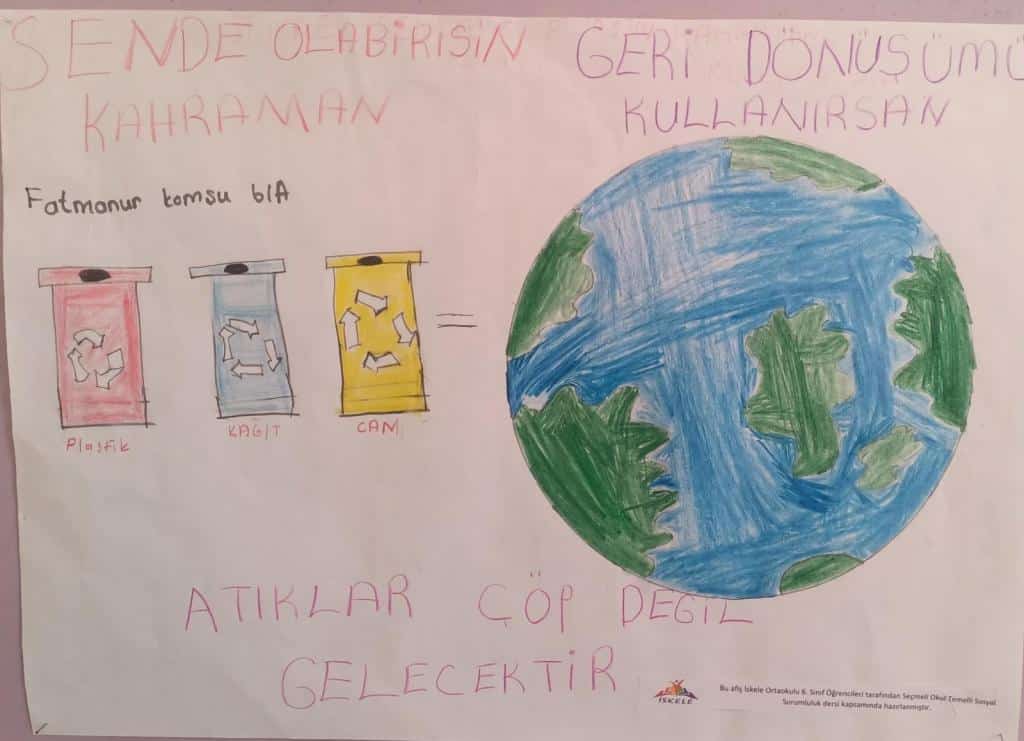 SENDE OLABİRİSİN
KAHRAMAN
GERİ DÖNÜŞÜMÜ
KULLANIRSAN
Fatmanur komsu 6/A
Plastik
KAĞIT
CAM
=
ATIKLAR ÇÖP DEĞİL
GELECEKTİR
İSKELE
Bu afiş İskele Ortaokulu 6. Sınıf Öğrencileri tarafından Seçmeli Okul Temelli Sosyal
Sorumluluk dersi kapsamında hazırlanmıştır.